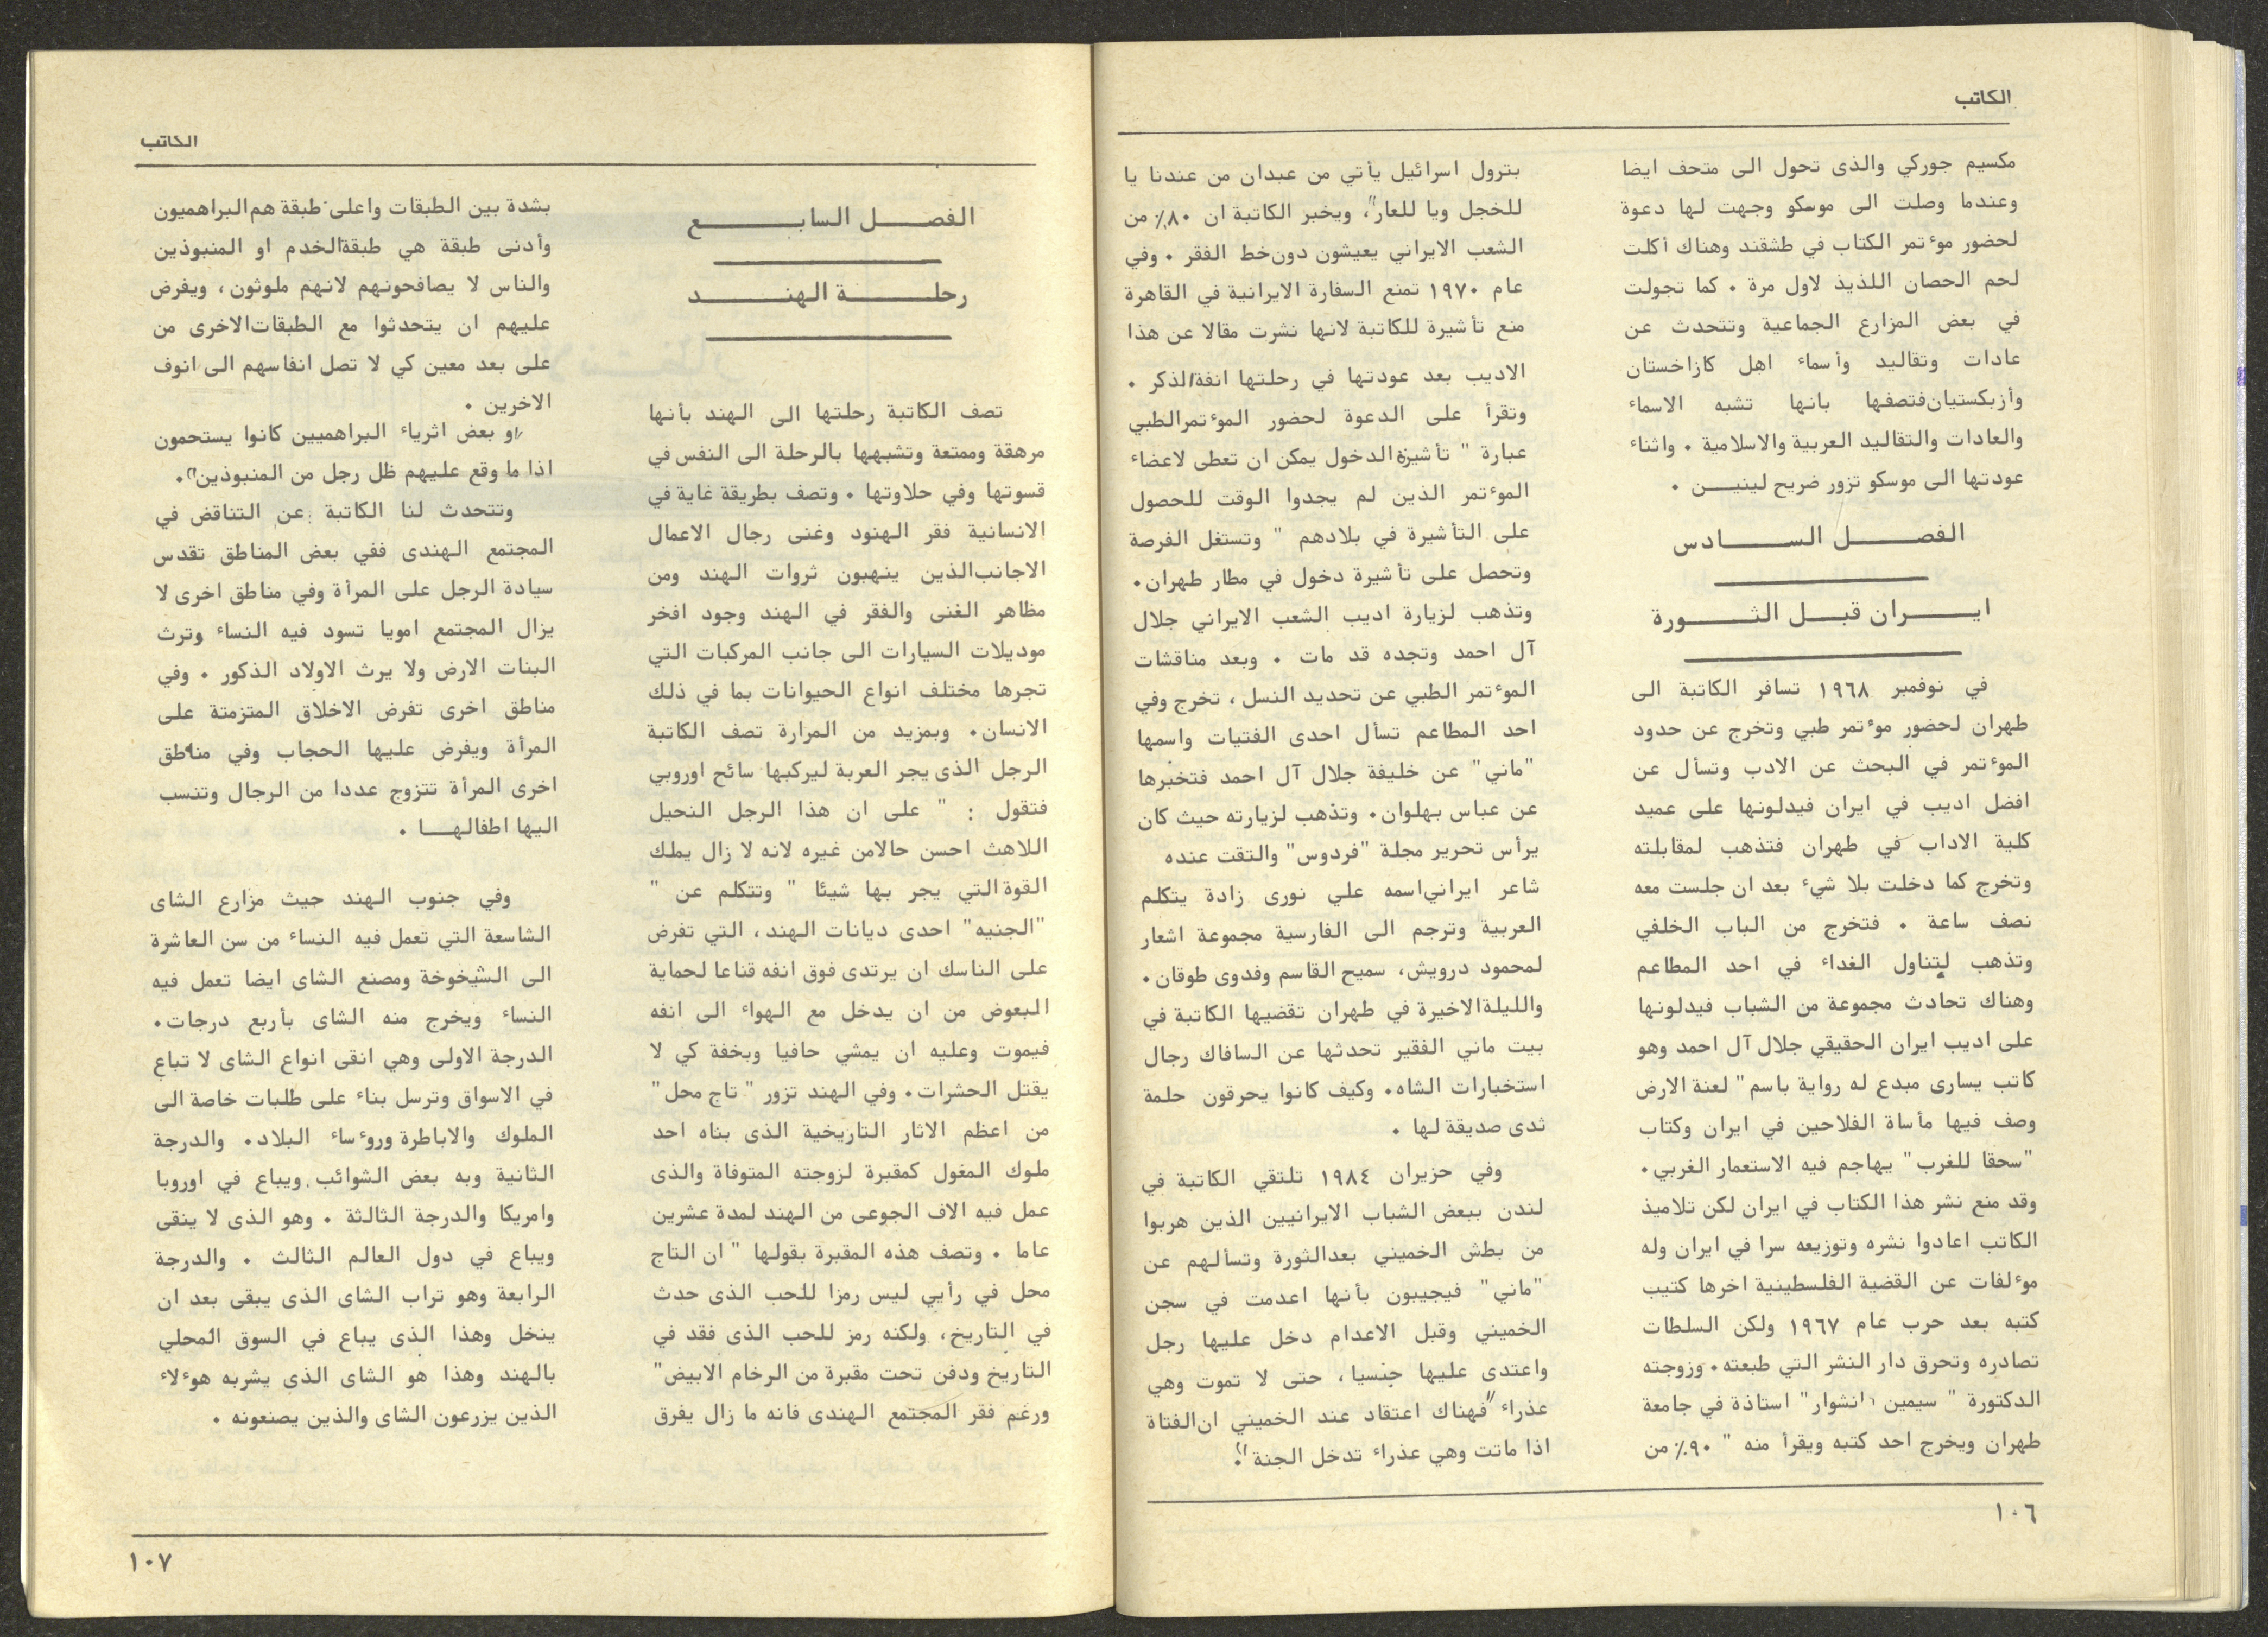 الكاتب
مكسيم جوركي والذى تحول الى متحف ايضا
وعندما وصلت الى موسكو وجهت لها دعوة
لحضور موءتمر الكتاب في طشقند وهناك أكلت
لحم الحصان اللذيذ لاول مرة ٠ كما تجولت
في بعض المزارع الجماعية وتتحدث عن
عادات وتقاليد وأسماء اهل كازاخستان
وأزبكستيان فتصفها بانها تشبه الاسماء
والعادات والتقاليد العربية والاسلامية ٠ واثناء
عودتها الى موسكو تزور ضريح لينيــن ٠
الفصــل الســادس
ايــران قبــل الثــورة
في نوفمبر ١٩٦٨ تسافر الكاتبة الى
طهران لحضور موءتمر طبي وتخرج عن حدود
الموءتمر في البحث عن الادب وتسأل عن
افضل اديب في ايران فيدلونها على عميد
كلية الاداب في طهران فتذهب لمقابلته
وتخرج كما دخلت بلا شيء بعد ان جلست معه
نصف ساعة ٠ فتخرج من الباب الخلفي
وتذهب لتناول الغداء في احد المطاعم
وهناك تحادث مجموعة من الشباب فيدلونها
على اديب ايران الحقيقي جلال آل احمد وهو
كاتب يسارى مبدع له رواية باسم " لعنة الارض
وصف فيها مأساة الفلاحين في ايران وكتاب
"سحقا للغرب" يهاجم فيه الاستعمار الغربي٠
وقد منع نشر هذا الكتاب في ايران لكن تلاميذ
الكاتب اعادوا نشره وتوزيعه سرا في ايران وله
موءلفات عن القضية الفلسطينية اخرها كتيب
كتبه بعد حرب عام ١٩٦٧ ولكن السلطات
تصادره وتحرق دار النشر التي طبعته٠ وزوجته
الدكتورة " سيمين دانشوار" استاذة في جامعة
طهران ويخرج احد كتبه ويقرأ منه " ٩٠٪ من
بترول اسرائيل يأتي من عبدان من عندنا يا
للخجل ويا للعار"، ويخبر الكاتبة ان ٨٠٪ من
الشعب الايراني يعيشون دون خط الفقر ٠ وفي
عام ١٩٧٠ تمنع السفارة الايرانية في القاهرة
منع تأشيرة للكاتبة لانها نشرت مقالا عن هذا
الاديب بعد عودتها في رحلتها انفة الذكر ٠
وتقرأ على الدعوة لحضور الموءتمر الطبي
عبارة " تأشيرة الدخول يمكن ان تعطى لاعضاء
الموءتمر الذين لم يجدوا الوقت للحصول
على التأشيرة في بلادهم " وتستغل الفرصة
وتحصل على تأشيرة دخول في مطار طهران٠
وتذهب لزيارة اديب الشعب الايراني جلال
آل احمد وتجده قد مات ٠ وبعد مناقشات
الموءتمر الطبي عن تحديد النسل، تخرج وفي
احد المطاعم تسأل احدى الفتيات واسمها
"ماني" عن خليفة جلال آل احمد فتخبرها
عن عباس بهلوان٠ وتذهب لزيارته حيث كان
يرأس تحرير مجلة "فردوس" والتقت عنده
شاعر ايراني اسمه علي نورى زادة يتكلم
العربية وترجم الى الفارسية مجموعة اشعار
لمحمود درويش، سميح القاسم وفدوى طوقان٠
والليلة الاخيرة في طهران تقضيها الكاتبة في
بيت ماني الفقير تحدثها عن السافاك رجال
استخبارات الشاه٠ وكيف كانوا يحرقون حلمة
ثدى صديقة لها ٠
وفي حزيران ١٩٨٤ تلتقي الكاتبة في
لندن ببعض الشباب الايرانيين الذين هربوا
من بطش الخميني بعد الثورة وتسألهم عن
"ماني" فيجيبون بأنها اعدمت في سجن
الخميني وقبل الاعدام دخل عليها رجل
واعتدى عليها جنسيا، حتى لا تموت وهي
عذراء "فهناك اعتقاد عند الخميني ان الفتاة
اذا ماتت وهي عذراء تدخل الجنة"٠
١٠٦
الكاتب
الفصــل السابــع
رحلــة الهنــد
تصف الكاتبة رحلتها الى الهند بأنها
مرهقة وممتعة وتشبهها بالرحلة الى النفس في
قسوتها وفي حلاوتها ٠ وتصف بطريقة غاية في
الانسانية فقر الهنود وغنى رجال الاعمال
الاجانب الذين ينهبون ثروات الهند ومن
مظاهر الغنى والفقر في الهند وجود افخر
موديلات السيارات الى جانب المركبات التي
تجرها مختلف انواع الحيوانات بما في ذلك
الانسان٠ وبمزيد من المرارة تصف الكاتبة
الرجل الذى يجر العربة ليركبها سائح اوروبي
فتقول : " على ان هذا الرجل النحيل
اللاهث احسن حالا من غيره لانه لا زال يملك
القوة التي يجر بها شيئا " وتتكلم عن "
"الجنيه" احدى ديانات الهند، التي تفرض
على الناسك ان يرتدى فوق انفه قناعا لحماية
البعوض من ان يدخل مع الهواء الى انفه
فيموت وعليه ان يمشي حافيا وبخفة كي لا
يقتل الحشرات٠ وفي الهند تزور " تاج محل"
من اعظم الاثار التاريخية الذى بناه احد
ملوك المغول كمقبرة لزوجته المتوفاة والذى
عمل فيه الاف الجوعى من الهند لمدة عشرين
عاما ٠ وتصف هذه المقبرة بقولها " ان التاج
محل في رأيي ليس رمزا للحب الذى حدث
في التاريخ، ولكنه رمز للحب الذى فقد في
التاريخ ودفن تحت مقبرة من الرخام الابيض"
ورغم فقر المجتمع الهندى فانه ما زال يفرق
بشدة بين الطبقات واعلى طبقة هم البراهميون
وأدنى طبقة هي طبقة الخدم او المنبوذين
والناس لا يصافحونهم لانهم ملوثون، ويفرض
عليهم ان يتحدثوا مع الطبقات الاخرى من
على بعد معين كي لا تصل انفاسهم الى انوف
الاخرين ٠
"و بعض اثرياء البراهميين كانوا يستحمون
اذا ما وقع عليهم ظل رجل من المنبوذين"٠
وتتحدث لنا الكاتبة عن التناقض في
المجتمع الهندى ففي بعض المناطق تقدس
سيادة الرجل على المرأة وفي مناطق اخرى لا
يزال المجتمع امويا تسود فيه النساء وترث
البنات الارض ولا يرث الاولاد الذكور ٠ وفي
مناطق اخرى تفرض الاخلاق المتزمتة على
المرأة ويفرض عليها الحجاب وفي مناطق
اخرى المرأة تتزوج عددا من الرجال وتنسب
اليها اطفالهــا ٠
وفي جنوب الهند حيث مزارع الشاى
الشاسعة التي تعمل فيه النساء من سن العاشرة
الى الشيخوخة ومصنع الشاى ايضا تعمل فيه
النساء ويخرج منه الشاى بأربع درجات٠
الدرجة الاولى وهي انقى انواع الشاى لا تباع
في الاسواق وترسل بناء على طلبات خاصة الى
الملوك والاباطرة وروءساء البلاد٠ والدرجة
الثانية وبه بعض الشوائب ويباع في اوروبا
وامريكا والدرجة الثالثة ٠ وهو الذى لا ينقى
ويباع في دول العالم الثالث ٠ والدرجة
الرابعة وهو تراب الشاى الذى يبقى بعد ان
ينخل وهذا الذى يباع في السوق المحلي
بالهند وهذا هو الشاى الذى يشربه هوءلاء
الذين يزرعون الشاى والذين يصنعونه ٠
١٠٧